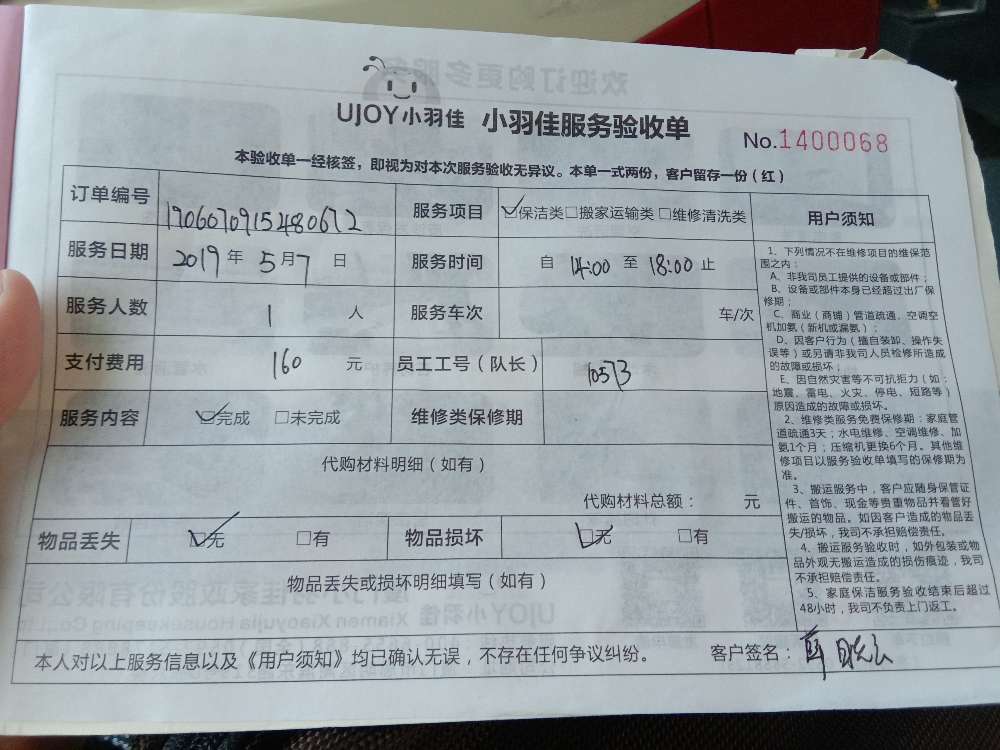 UJOY小羽佳 小羽佳服务验收单 No.1400068
本验收单一经核签，即视为对本次服务验收无异议。本单一式两份，客户留存一份（红）
订单编号 1906070915480672 服务项目 ☑保洁类□搬家运输类□维修清洗类
服务日期 2019年5月7日 服务时间 自 14:00 至 18:00 止
服务人数 1 人 服务车次 车/次
支付费用 160 元 员工工号（队长） 10573
服务内容 ☑完成 □未完成 维修类保修期
代购材料明细（如有）
代购材料总额： 元
物品丢失 ☑无 □有 物品损坏 ☑无 □有
物品丢失或损坏明细填写（如有）
用户须知
1、下列情况不在维修项目的维保范
围之内：
A、非我司员工提供的设备或部件；
B、设备或部件本身已经超过出厂保
修期；
C、商业（商铺）管道疏通、空调空
机加氨（新机或漏氨）；
D、因客户行为（擅自装卸、操作失
误等）或另请非我司人员检修所造成
的故障或损坏；
E、因自然灾害等不可抗拒力（如：
地震、雷电、火灾、停电、短路等）
原因造成的故障或损坏。
2、维修类服务免费保修期：家庭管
道疏通3天；水电维修、空调维修、加
氨1个月；压缩机更换6个月。其他维
修项目以服务验收单填写的保修期为
准。
3、搬运服务中，客户应随身保管证
件、首饰、现金等贵重物品并看管好
搬运的物品。如因客户造成的物品丢
失/损坏，我司不承担赔偿责任。
4、搬运服务验收时，如外包装或物
品外观无搬运造成的损伤痕迹，我司
不承担赔偿责任。
5、家庭保洁服务验收结束后超过
48小时，我司不负责上门返工。
本人对以上服务信息以及《用户须知》均已确认无误，不存在任何争议纠纷。 客户签名：